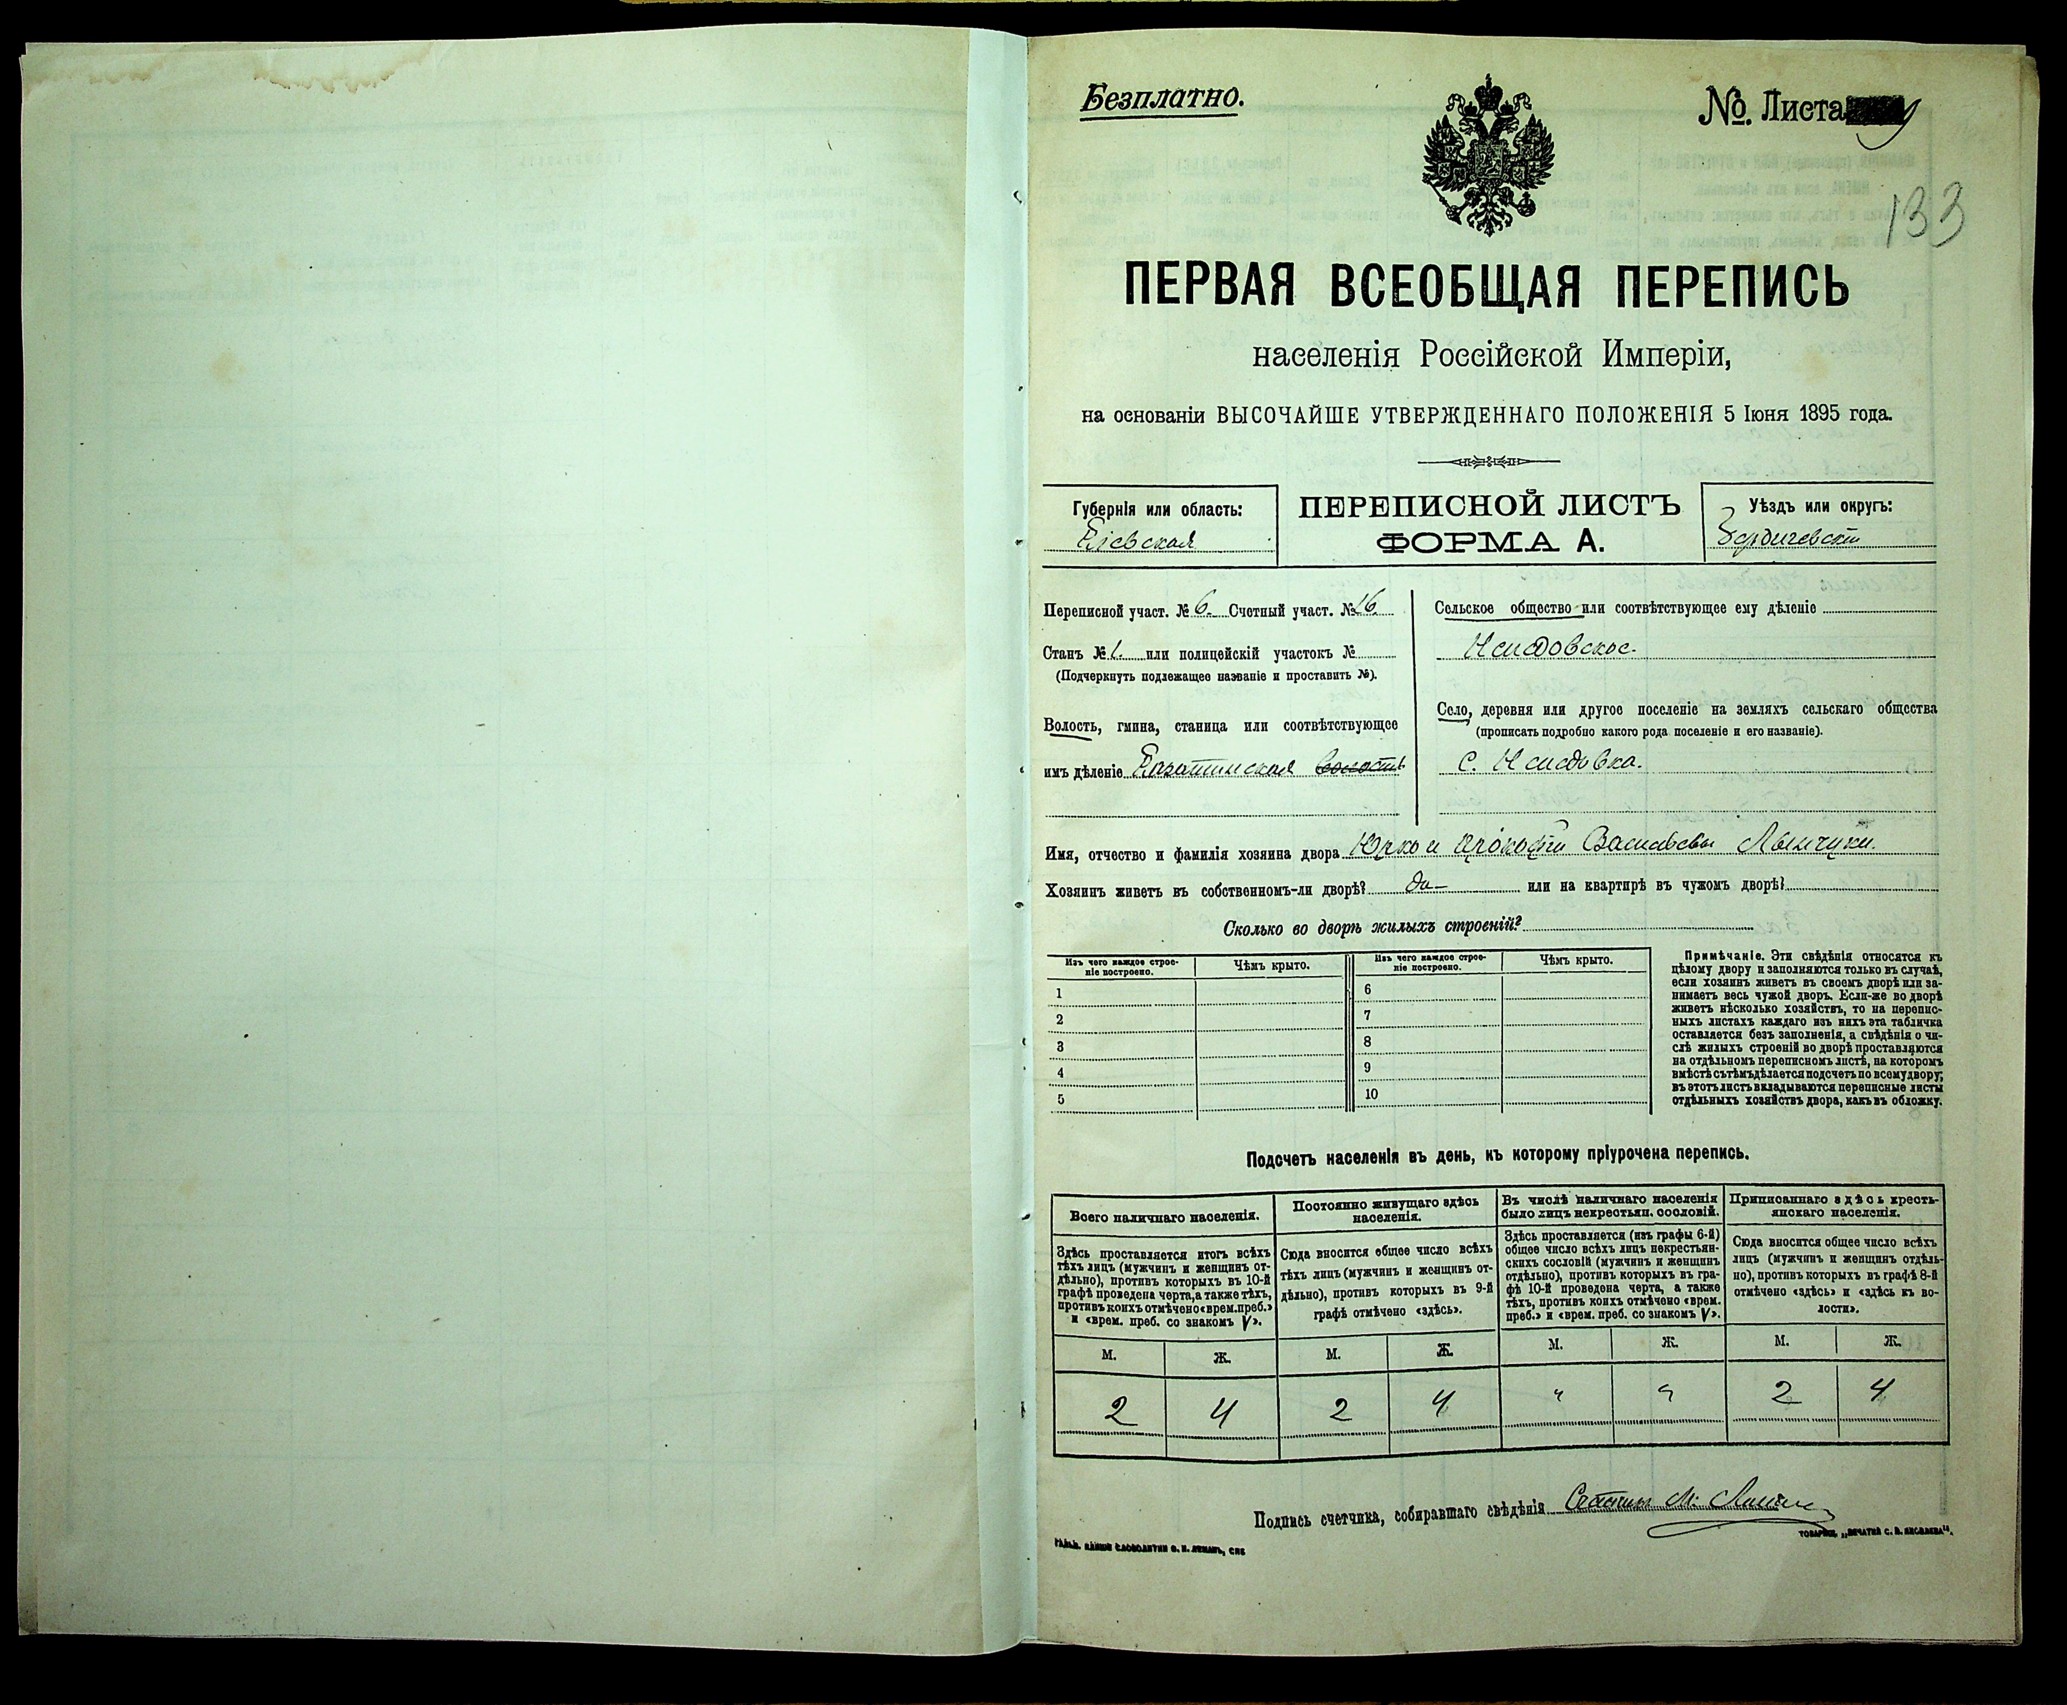 Безплатно.
№. Листа
133
ПЕРВАЯ ВСЕОБЩАЯ ПЕРЕПИСЬ
населенія Россійской Имперіи,
на основаніи ВЫСОЧАЙШЕ УТВЕРЖДЕННАГО ПОЛОЖЕНІЯ 5 Іюня 1895 года.
Губернія или область:
Кіевская
ПЕРЕПИСНОЙ ЛИСТЪ
ФОРМА А.
Уѣздъ или округъ:
Бердичевскій
Переписной участ. № 6. Счетный участ. № 16
Станъ № 1. или полицейскій участокъ №
(Подчеркнуть подлежащее названіе и проставить №).
Волость, гмина, станица или соотвѣтствующее
имъ дѣленіе Казатинская волость
Сельское общество или соотвѣтствующее ему дѣленіе
Село, деревня или другое поселеніе на земляхъ сельскаго общества
(прописать подробно какого рода поселеніе и его названіе).
с.
Имя, отчество и фамилія хозяина двора Юрко и Прокофій Васильевы
Хозяинъ живетъ въ собственномъ-ли дворѣ? да или на квартирѣ въ чужомъ дворѣ?
Сколько во дворѣ жилыхъ строеній?
Изъ чего каждое строе-
ніе построено.
Чѣмъ крыто.
1
2
3
4
5
Изъ чего каждое строе-
ніе построено.
Чѣмъ крыто.
6
7
8
9
10
Примѣчаніе. Эти свѣдѣнія относятся къ
цѣлому двору и заполняются только въ случаѣ,
если хозяинъ живетъ въ своемъ дворѣ или за-
нимаетъ весь чужой дворъ. Если-же во дворѣ
живетъ нѣсколько хозяйствъ, то на перепис-
ныхъ листахъ каждаго изъ нихъ эта табличка
оставляется безъ заполненія, а свѣдѣнія о чи-
слѣ жилыхъ строеній во дворѣ проставляются
на отдѣльномъ переписномъ листѣ, на которомъ
вмѣстѣ съ тѣмъ дѣлается подсчетъ по всему двору;
въ этотъ листъ вкладываются переписные листы
отдѣльныхъ хозяйствъ двора, какъ въ обложку.
Подсчетъ населенія въ день, къ которому пріурочена перепись.
Всего наличнаго населенія.
Здѣсь проставляется итогъ всѣхъ
тѣхъ лицъ (мужчинъ и женщинъ от-
дѣльно), противъ которыхъ въ 10-й
графѣ проведена черта, а также тѣхъ,
противъ коихъ отмѣчено «врем. преб.»
и «врем. преб. со знакомъ V».
М. Ж.
2 4
Постоянно живущаго здѣсь
населенія.
Сюда вносится общее число всѣхъ
тѣхъ лицъ (мужчинъ и женщинъ от-
дѣльно), противъ которыхъ въ 9-й
графѣ отмѣчено «здѣсь».
М. Ж.
2 4
Въ числѣ наличнаго населенія
было лицъ некрестьян. сословій.
Здѣсь проставляется (изъ графы 6-й)
общее число всѣхъ лицъ некрестьян-
скихъ сословій (мужчинъ и женщинъ
отдѣльно), противъ которыхъ въ гра-
фѣ 10-й проведена черта, а также
тѣхъ, противъ коихъ отмѣчено «врем.
преб.» и «врем. преб. со знакомъ V».
М. Ж.
" "
Приписаннаго здѣсь кресть-
янскаго населенія.
Сюда вносится общее число всѣхъ
лицъ (мужчинъ и женщинъ отдѣль-
но), противъ которыхъ въ графѣ 8-й
отмѣчено «здѣсь» и «здѣсь къ во-
лости».
М. Ж.
2 4
Подпись счетчика, собиравшаго свѣдѣнія